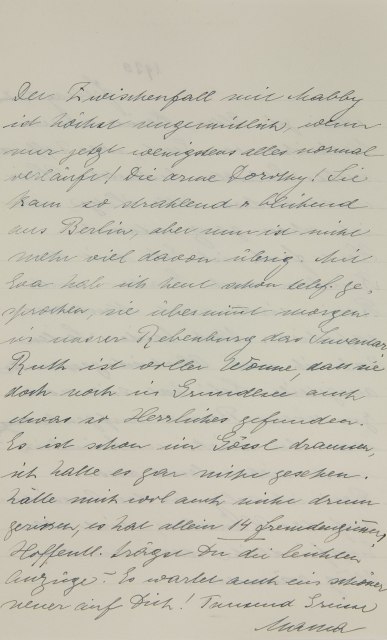 Der Zwischenfall mit Mabby
ist höchst ungemütlich, wenn
nur jetzt wenigstens alles normal
verläuft! Die arme Dorothy! Sie
kam so strahlend & blühend
aus Berlin, aber nun ist nicht
mehr viel davon übrig. Mit
Eva hab ich heut schon telef. ge-
sprochen, sie übernimmt morgen
in unserer Rebenburg das Inventar.
Ruth ist voller Wonne, dass sie
doch noch in Grundlsee auch
etwas so Herrliches gefunden.
Es ist schon in Gössl draussen,
ich hatte es gar nicht gesehen.
Hätte mich wol auch nicht drum
gerissen, es hat allein 14 Fremdenzimmer,
Hoffentl. trägst Du die leichten
Anzüge? Es wartet auch ein schöner
neuer auf Dich! Tausend Grüsse
Mama